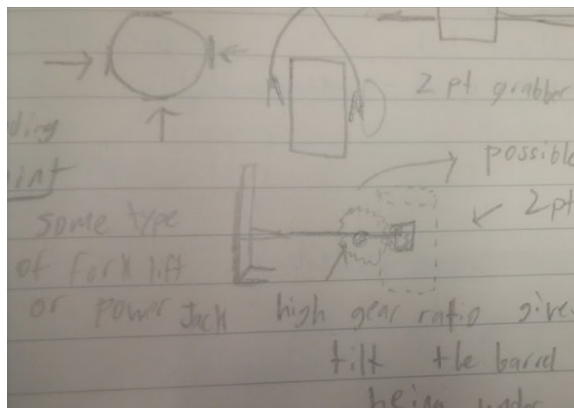 2 pt grabber
ding
possible
int
2pt
some type
of fork lift
or power Jack
high gear ratio give
tilt the barrel
being under